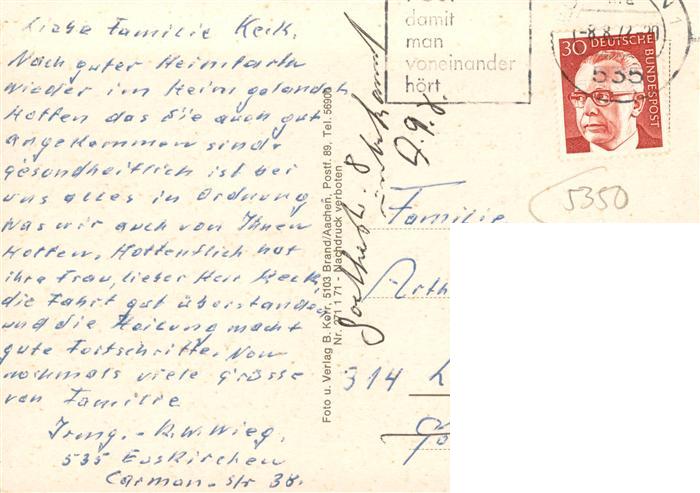 Liebe Familie Keck.
Nach guter Heimfarth
wieder im Heim gelandet
Hoffen das Sie auch gut
angekommen sind.
gesundheitlich ist bei
uns alles in Ordnung
was wir auch von Ihnen
hoffen. Hoffentlich hat
ihre Frau, lieber Herr Keck,
die Fahrt gut überstanden
und die Heilung macht
gute Fortschritte. Nun
nochmals viele Grüsse
von Familie
Irmg. - K.W. Wieg.
535 Euskirchen
Carman-str 38.
Foto u. Verlag B. Kerr, 5103 Brand/Aachen, Postf. 89, Tel. 56900
Nr. 271 1 71 - Nachdruck verboten
Goethestr. 8
unbekannt
9.9.
damit
man
voneinander
hört
-8.8.72.20
535
30 DEUTSCHE
BUNDESPOST
5350
Familie
Arth
314